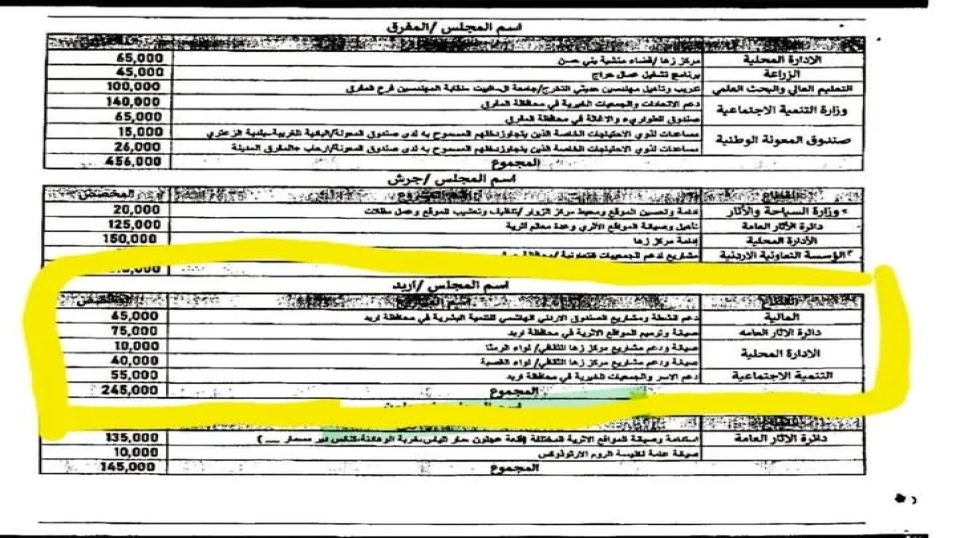 اسم المجلس /المفرق
الادارة المحلية مركز زها /قضاء منشية بني حسن 65,000
الزراعة برنامج تشغيل عمال حراج 45,000
التعليم العالي والبحث العلمي تدريب وتأهيل مهندسين حديثي التخرج/جامعة ال البيت نقابة المهندسين فرع المفرق 100,000
وزارة التنمية الاجتماعية دعم الاتحادات والجمعيات الخيرية في محافظة المفرق 140,000
صندوق الطوارىء والاغاثة في محافظة المفرق 65,000
صندوق المعونة الوطنية مساعدات لذوي الاحتياجات الخاصة الذين يتجاوز دخلهم المسموح به لدى صندوق المعونة/البادية الغربية-بلدية الزعتري 15,000
مساعدات لذوي الاحتياجات الخاصة الذين يتجاوز دخلهم المسموح به لدى صندوق المعونة/ارحاب المفرق المدينة 26,000
المجموع 456,000
اسم المجلس /جرش
القطاع المخصص
وزارة السياحة والآثار ادامة وتحسين الموقع ومحيط مركز الزوار /تنظيف وتعشيب الموقع وعمل مظلات 20,000
دائرة الآثار العامة تأهيل وصيانة المواقع الأثري وعدة معالم اثرية 125,000
الأدارة المحلية إدامة مركز زها 150,000
المؤسسة التعاونية الاردنية مشاريع لدعم الجمعيات التعاونية
اسم المجلس /اربد
القطاع اسم المشروع المخصص
المالية دعم انشطة ومشاريع الصندوق الاردني الهاشمي للتنمية البشرية في محافظة اربد 65,000
دائرة الاثار العامه صيانة وترميم المواقع الاثرية في محافظة اربد 75,000
الادارة المحلية صيانة ودعم مشاريع مركز زها الثقافي/ لواء الرمثا 10,000
صيانة ودعم مشاريع مركز زها الثقافي/ لواء القصبة 40,000
التنمية الاجتماعية دعم الاسر والجمعيات الخيرية في محافظة اربد 55,000
المجموع 245,000
دائرة الآثار العامة استدامة وصيانة المواقع الاثرية المختلفة 135,000
صيانة عامة لكنيسة الروم الارثوذوكس 10,000
المجموع 145,000